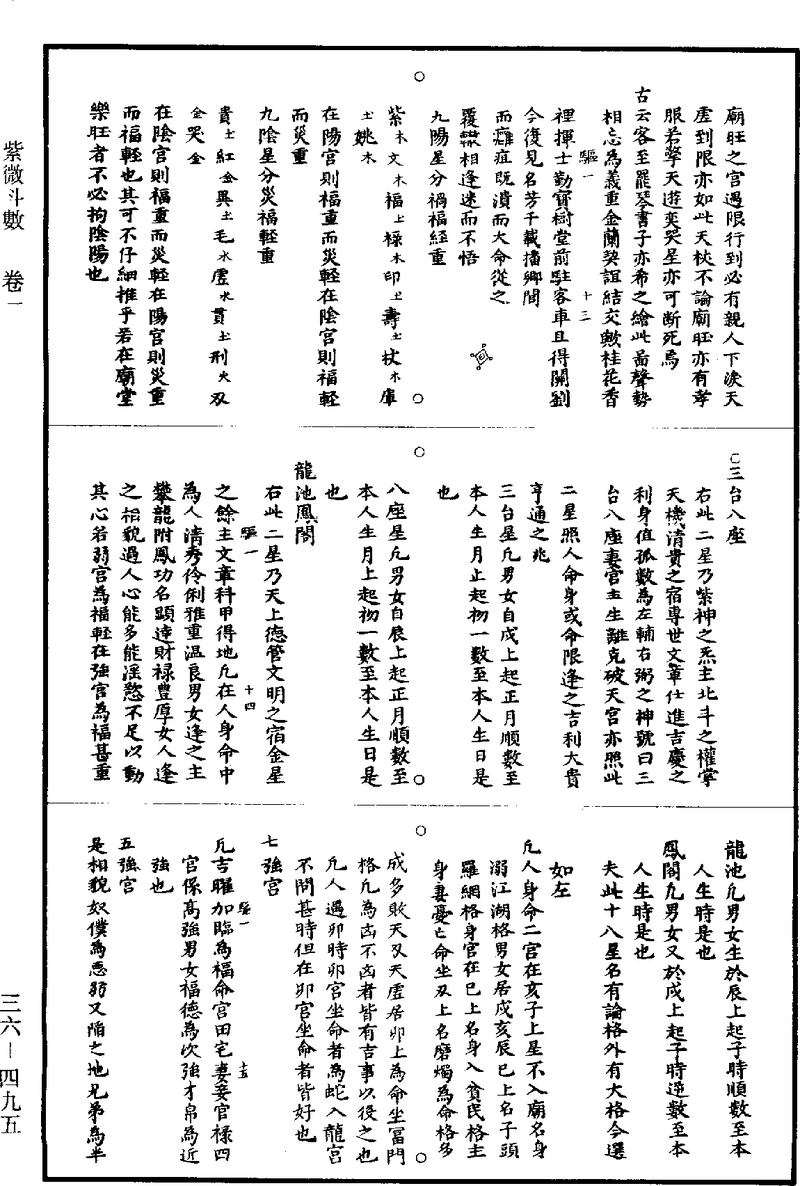 廟旺之宮遇限行到必有親人下淚天
虛到限亦如此天杖不論廟旺亦有孝
服若擎天遊奕哭星亦可断死焉
古云客至罷琴書子亦希之繪此啚聲勢
相忘為義重金蘭契誼結交數桂花香
驅一 十三
裡揮士勤寳樹堂前駐客車且得開劉
今復見名芳千載播鄉閭
而癰疽既潰而大命從之
覆轍相逢迷而不悟
九陽星分禍福經重
紫木文木福土祿木印土壽土杖木庫
土姚木
在陽宮則福重而災輕在陰宮則福輕
而災重
九陰星分災福輕重
貴土紅金異土毛水虛水貫土刑火刄
金哭金
在陰宮則福重而災輕在陽宮則災重
而福輕也其可不仔細推乎若在廟堂
樂旺者不必拘陰陽也
三台八座
右此二星乃紫神之炁主北斗之權掌
天機清貴之宿專世文章仕進吉慶之
利身值孤數為左輔右弼之神號曰三
台八座妻宮主生離克破天宮亦照此
二星照人命身或命限逢之吉利大貴
亨通之兆
三台星凡男女自戌上起正月順數至
本人生月止起初一數至本人生日是
也
八座星凡男女自辰上起正月順數至
本人生月上起初一數至本人生日是
也
龍池鳳閣
右此二星乃天上德管文明之宿金星
驅一 十四
之餘主文章科甲得地凡在人身命中
為人清秀伶俐雅重溫良男女逢之主
攀龍附鳳功名顕達財祿豐厚女人逢
之相貌過人心能多能淫慾不足以動
其心若弱宮為福輕在強宮為福甚重
龍池凡男女生於辰上起子時順數至本
人生時是也
鳳閣凡男女又於戌上起子時逆數至本
人生時是也
夫此十八星名有論格外有大格今選
如左
凡人身命二宮在亥子上星不入廟名身
溺江湖格男女居戌亥辰巳上名子頭
羅網格身宮在巳上名身入貧民格主
身妻憂亡命坐刄上名磨燭為命格多
成多敗天刄天虛居卯上為命坐冨門
格凡為凶不凶者皆有吉事以後之也
凡人遇卯時卯宮坐命者為蛇入龍宮
不問甚時但在卯宮坐命者皆好也
七強宮
驅一 十五
凡吉曜加臨為福命宮田宅妻妾官祿四
宮係高強男女福德為次強才帛為近
強也
五強宮
是相貌奴僕為惡弱又陷之地兄弟為半
紫微斗數 卷一
三六—四九五